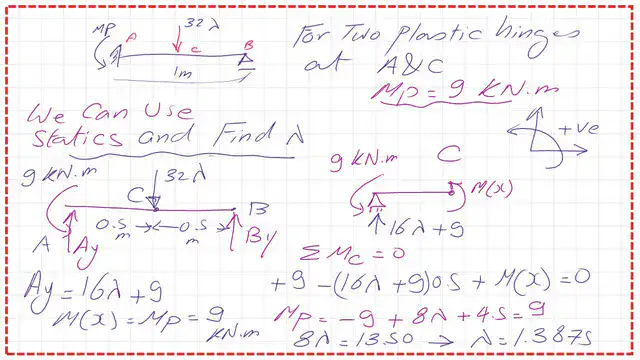 For Two plastic hinges
at A&C
Mp = 9 KN.m
MP
A
32λ
C
B
1m
We Can Use
Statics and Find λ
+ve
9 KN.m
C
32λ
0.5 m
0.5 m
B
A
Ay
By
9 KN.m
C
M(x)
16λ+9
ΣMc = 0
Ay = 16λ+9
M(x) = Mp = 9 KN.m
+9 -(16λ+9)0.5 + M(x) = 0
Mp = -9 + 8λ + 4.5 = 9
8λ = 13.50 → λ = 1.3875